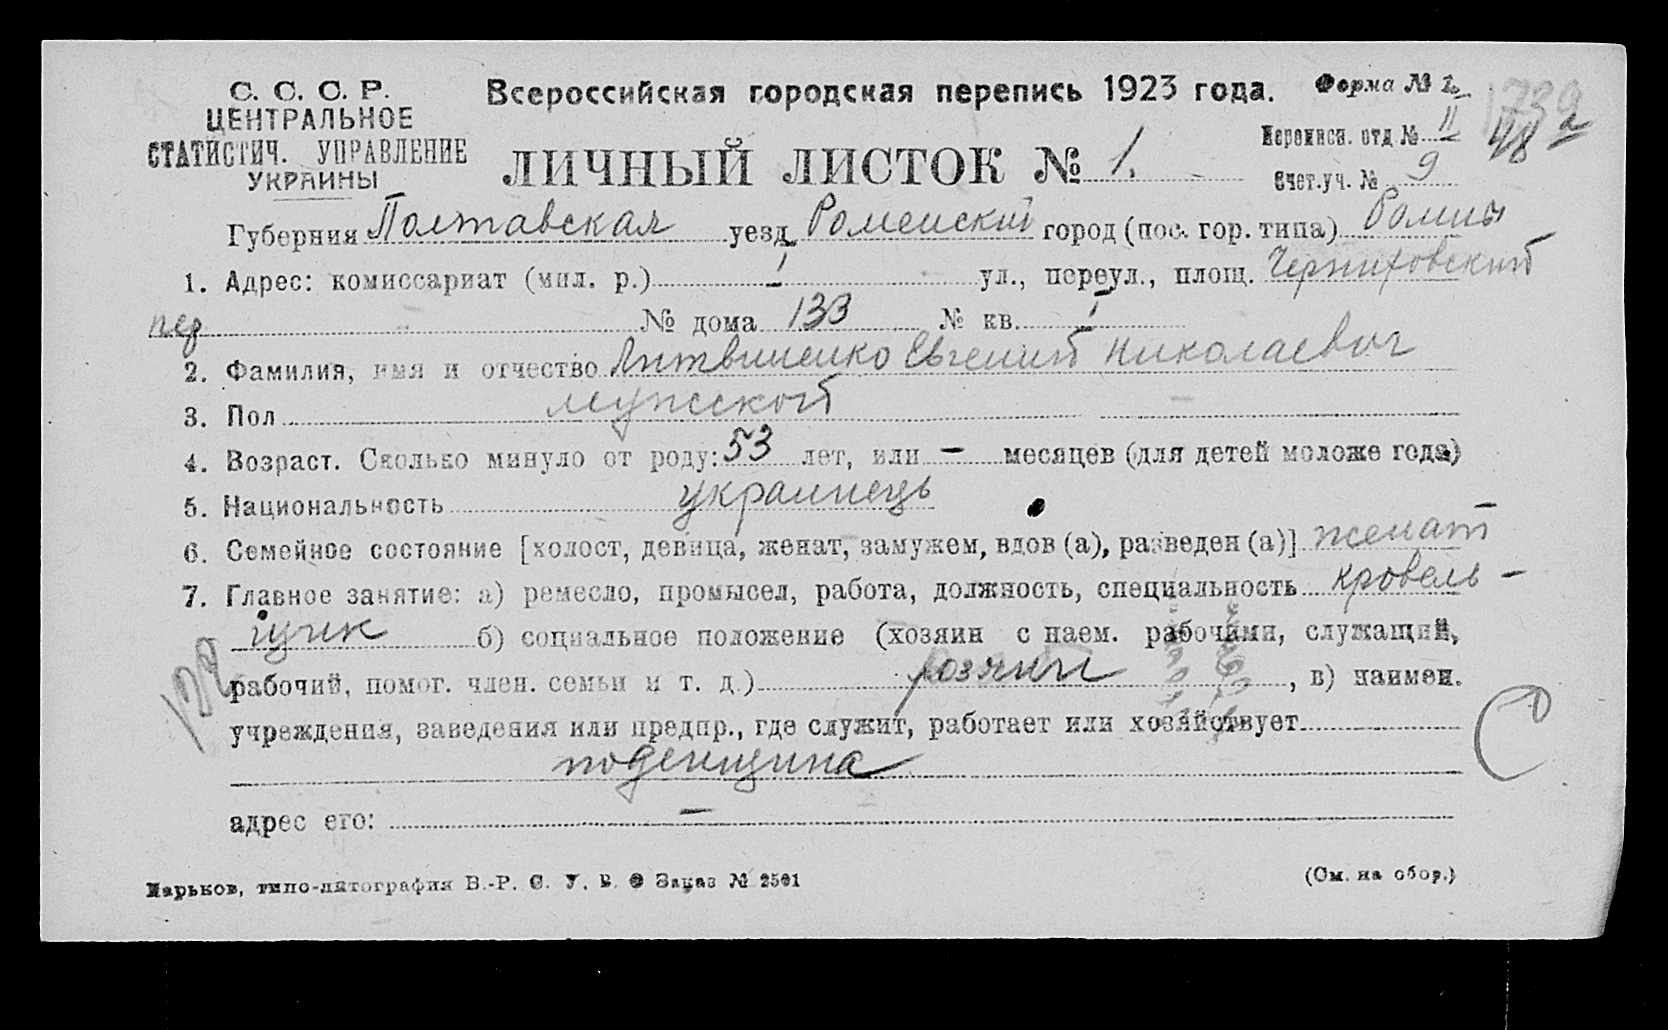 С. С. С. Р.
ЦЕНТРАЛЬНОЕ
СТАТИСТИЧ. УПРАВЛЕНИЕ
УКРАИНЫ
Всероссийская городская перепись 1923 года.
Форма № 1.
ЛИЧНЫЙ ЛИСТОК № 1.
Переписн. отд. № II
48
Счет.уч. № 9
Губерния Полтавская уезд Роменский город (пос. гор. типа) Ромны
1. Адрес: комиссариат (мил. р.) 1 ул., переул., площ. Черниховский
пер № дома 133 № кв. 1
2. Фамилия, имя и отчество Литвиненко Евгений Николаевич
3. Пол мужской
4. Возраст. Сколько минуло от роду: 53 лет, или — месяцев (для детей моложе года)
5. Национальность украинець
6. Семейное состояние [холост, девица, женат, замужем, вдов (а), разведен (а)] женат
7. Главное занятие: а) ремесло, промысел, работа, должность, специальность кровель-
щик б) социальное положение (хозяин с наем. рабочими, служащий,
рабочий, помог. член. семьи и т. д.) хозяин, в) наимен.
учреждения, заведения или предпр., где служит, работает или хозяйствует
поденщина
адрес его: —
Харьков, типо-литография В.-Р. С. У. В. О Заказ № 2501
(См. на обор.)